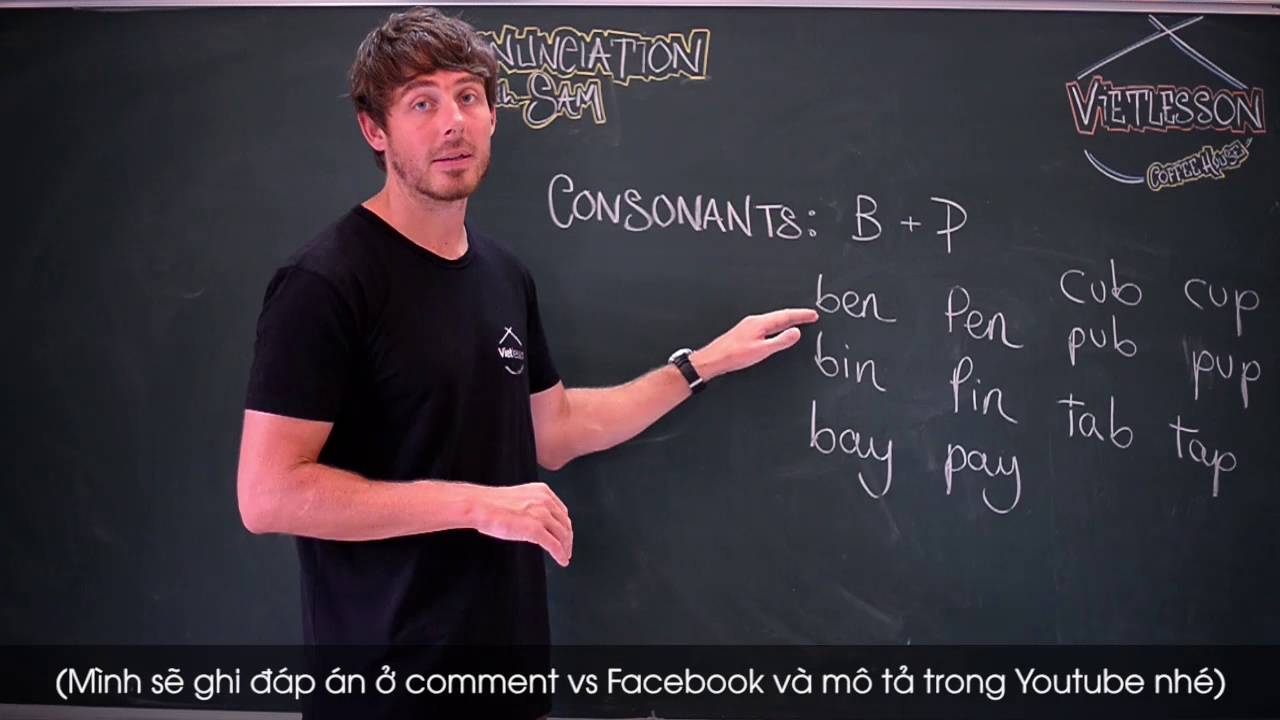 NUNCIATION
SAM
VIETLESSON
COFFEE HOUSE
CONSONANTS: B + P
ben Pen cub cup
bin Pin pub pup
bay pay tab tap
Viet
(Mình sẽ ghi đáp án ở comment vs Facebook và mô tả trong Youtube nhé)